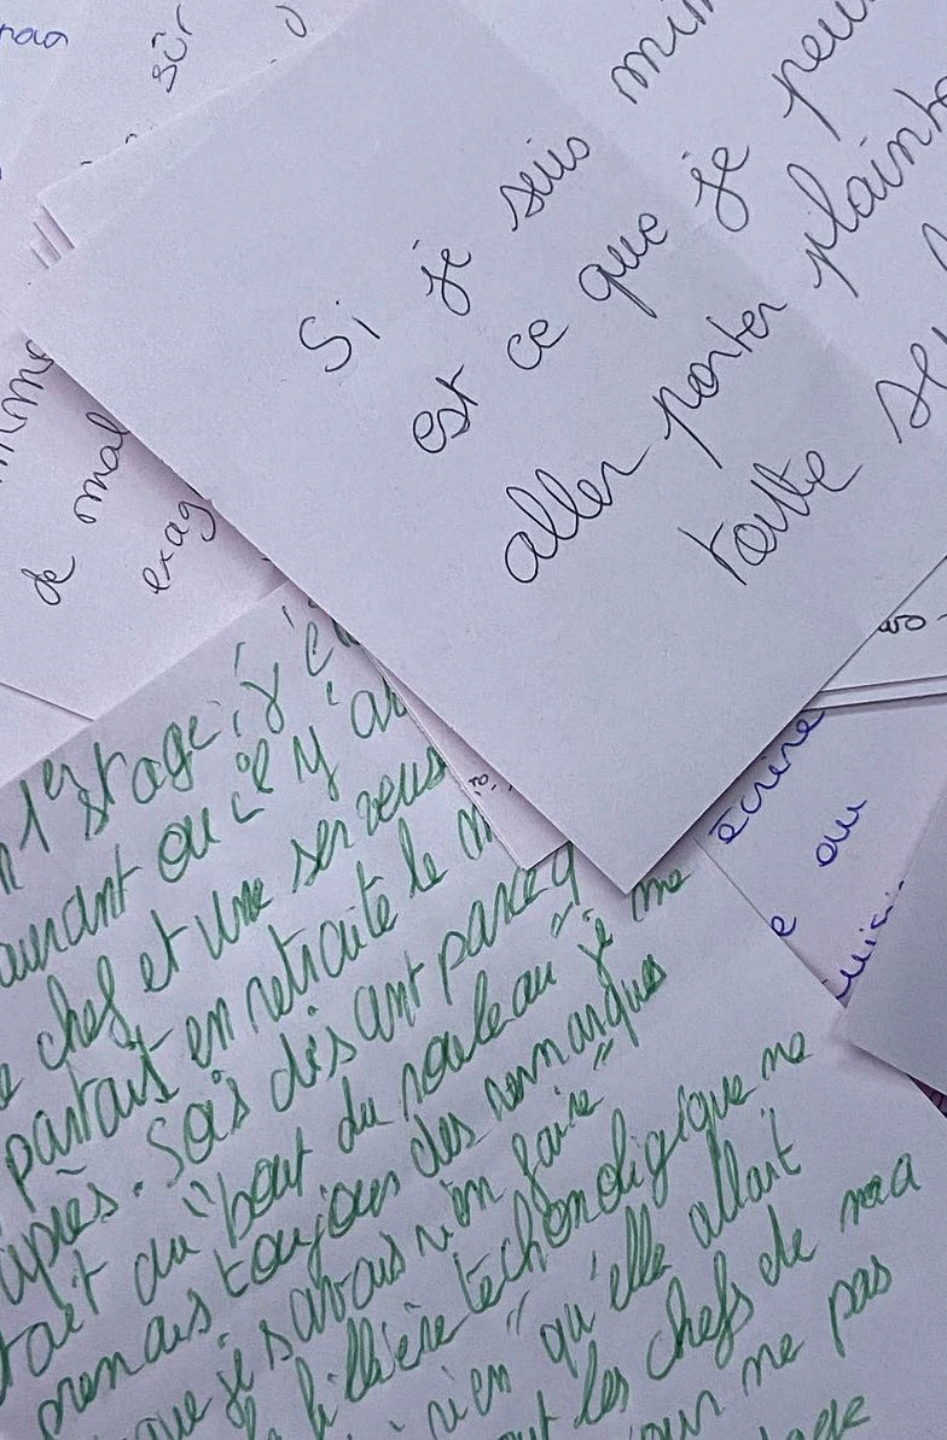 sûr
Si je suis min
est ce que je peu
aller porter plaint
toute seu
de mal
exag
1er stage, j'é
ou il y av
chef et une serveus
partait en retraite le m
après. Sois disant parceq
tait au "bout du rouleau" je me
prenais toujours des remarques
que je savais rien faire"
la fillière techonoligique ne
rien" qu'elle allait
les chefs de ma
our ne pas
écrire
ou